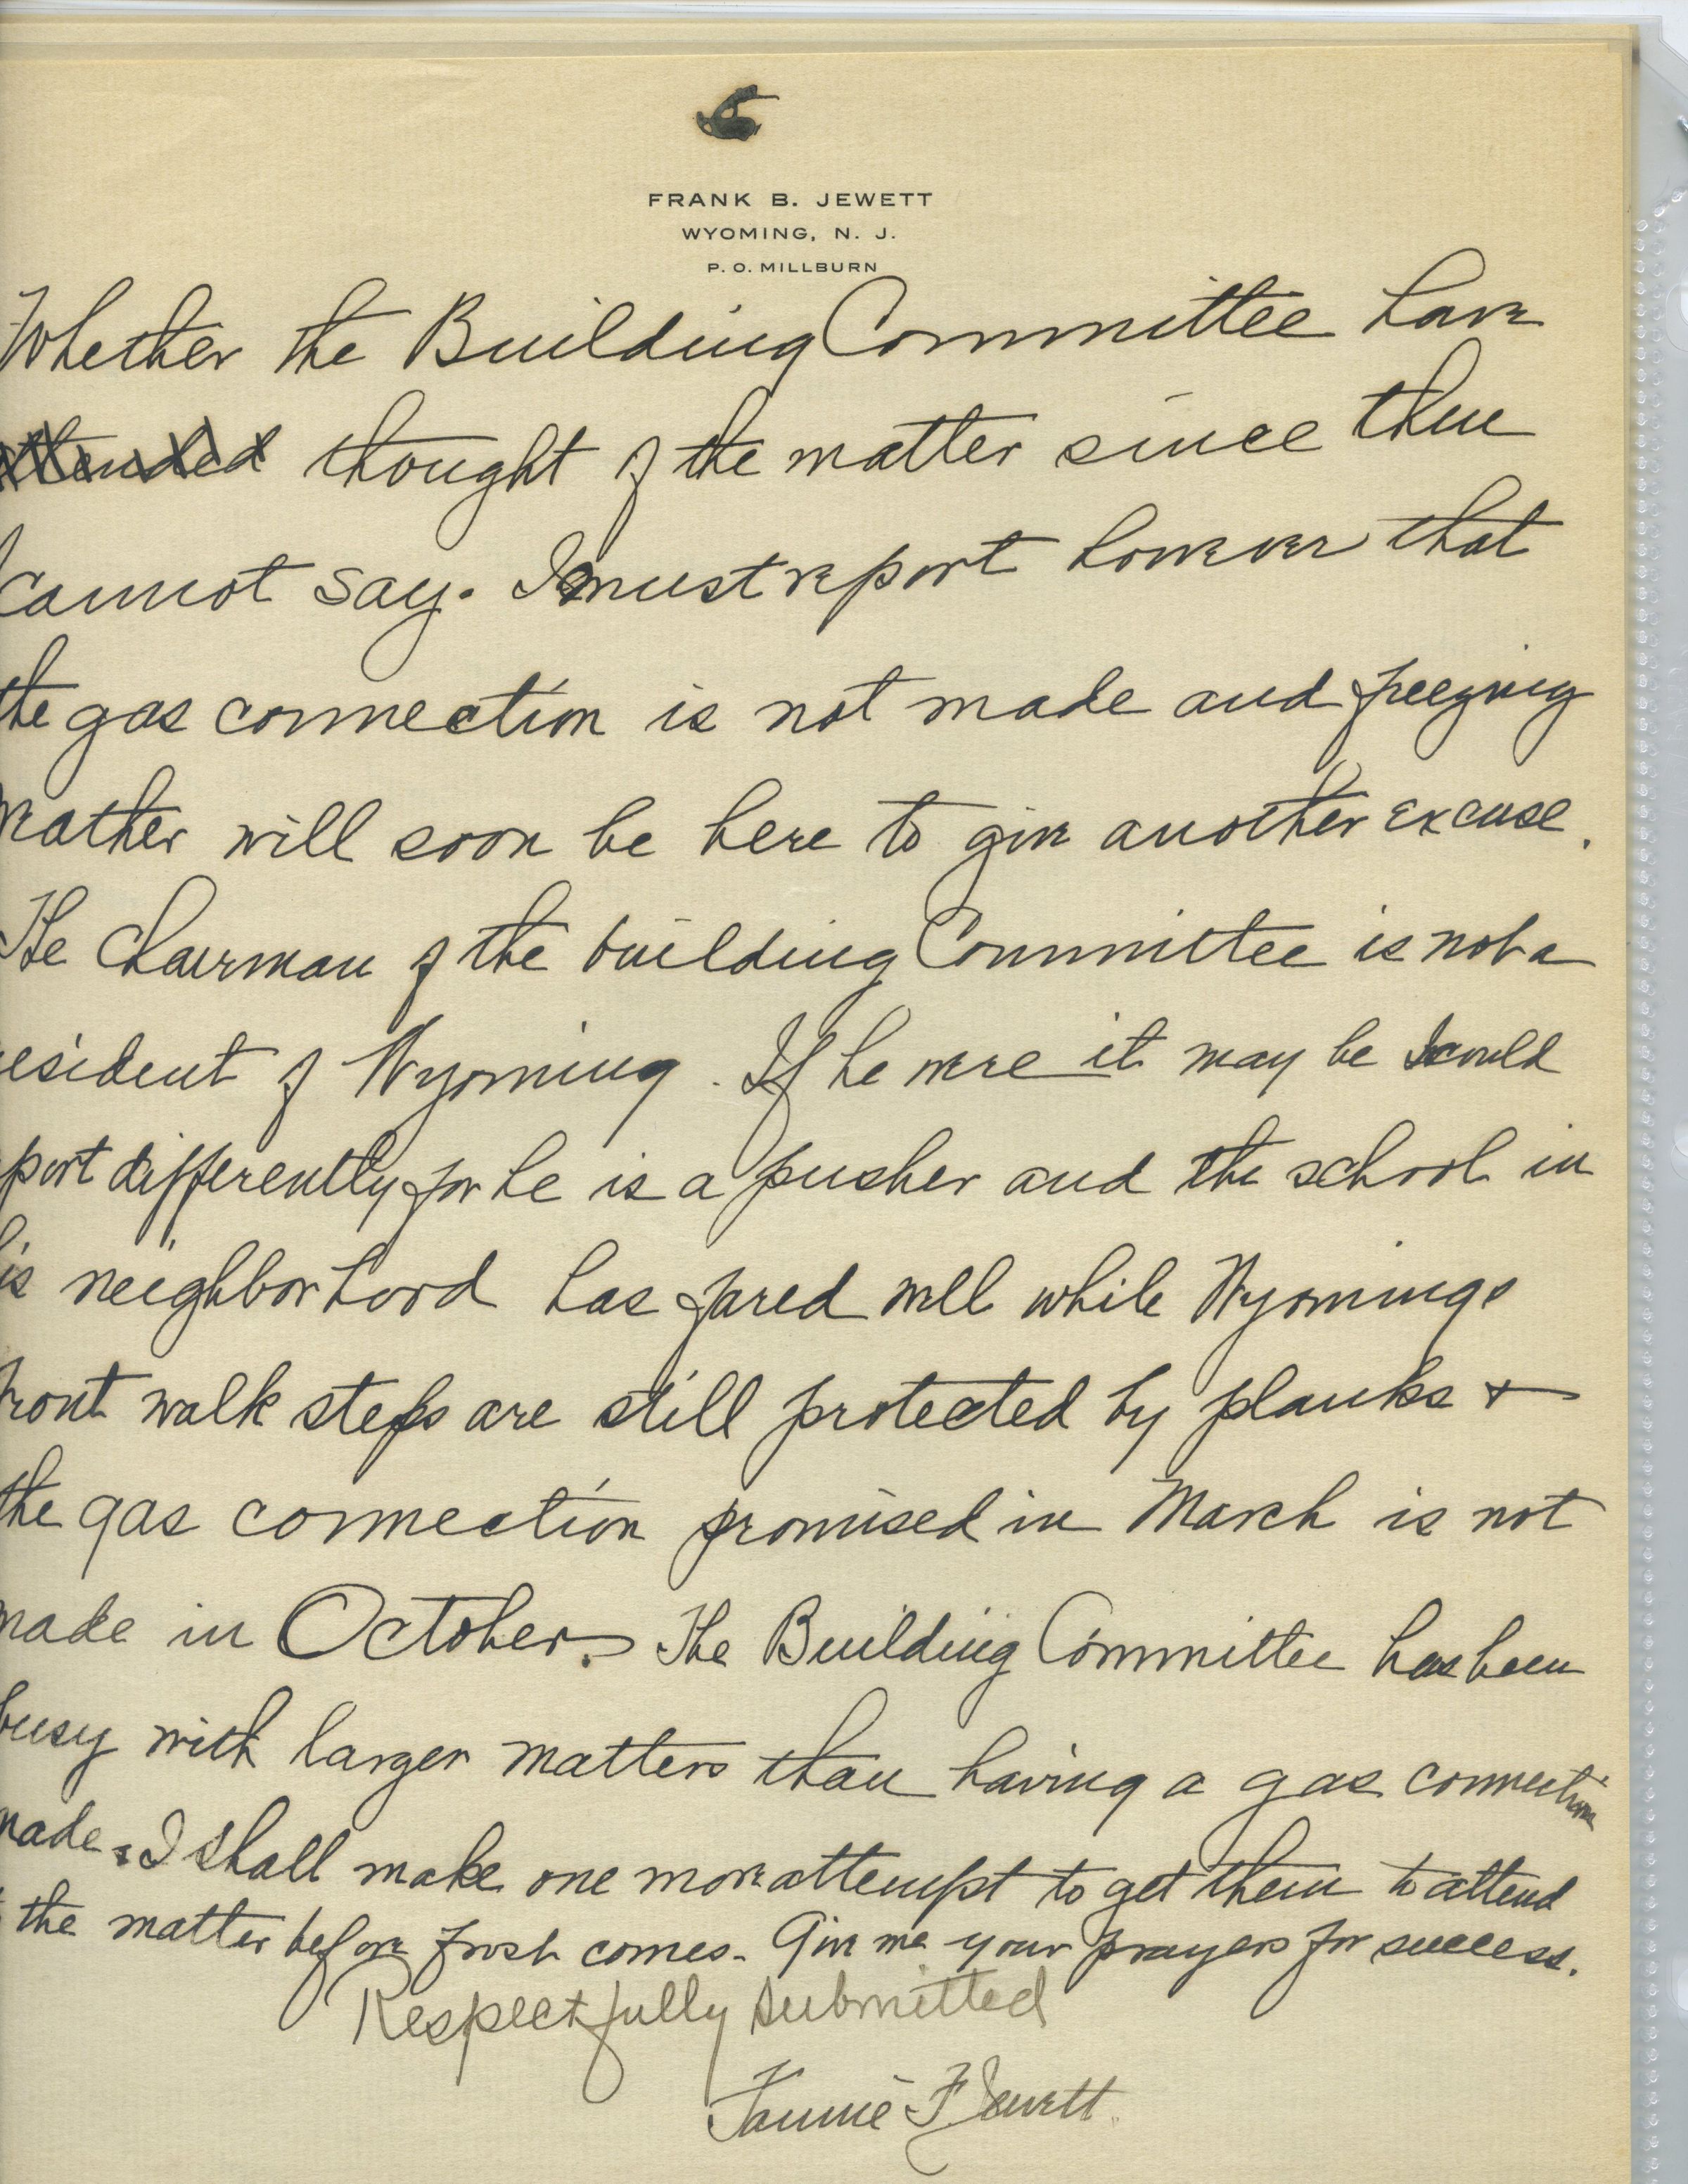 FRANK B. JEWETT
WYOMING, N. J.
P. O. MILLBURN
Whether the Building Committee have
attended thought of the matter since then
cannot say. I must report however that
the gas connection is not made and freezing
weather will soon be here to give another excuse.
The Chairman of the building Committee is not a
resident of Wyoming. If he were it may be I could
port differently for he is a pusher and the school in
his neighborhood has fared well while Wyomings
front walk steps are still protected by planks +
the gas connection promised in March is not
made in October. The Building Committee has been
busy with larger matters than having a gas connection
made. I shall make one more attempt to get them to attend
the matter before frost comes. Give me your prayers for success.
Respectfully submitted
Fannie F Jewett.